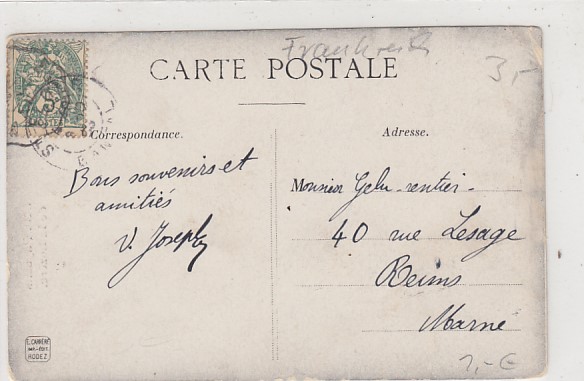 Frankreich
CARTE POSTALE
3,-
Correspondance.
Adresse.
Bons souvenirs et
amitiés
V. Joseph
Monsieur Gelu-rentier-
40 rue Lesage
Reims
Marne
E. CARRÈRE
RODEZ
1,-€